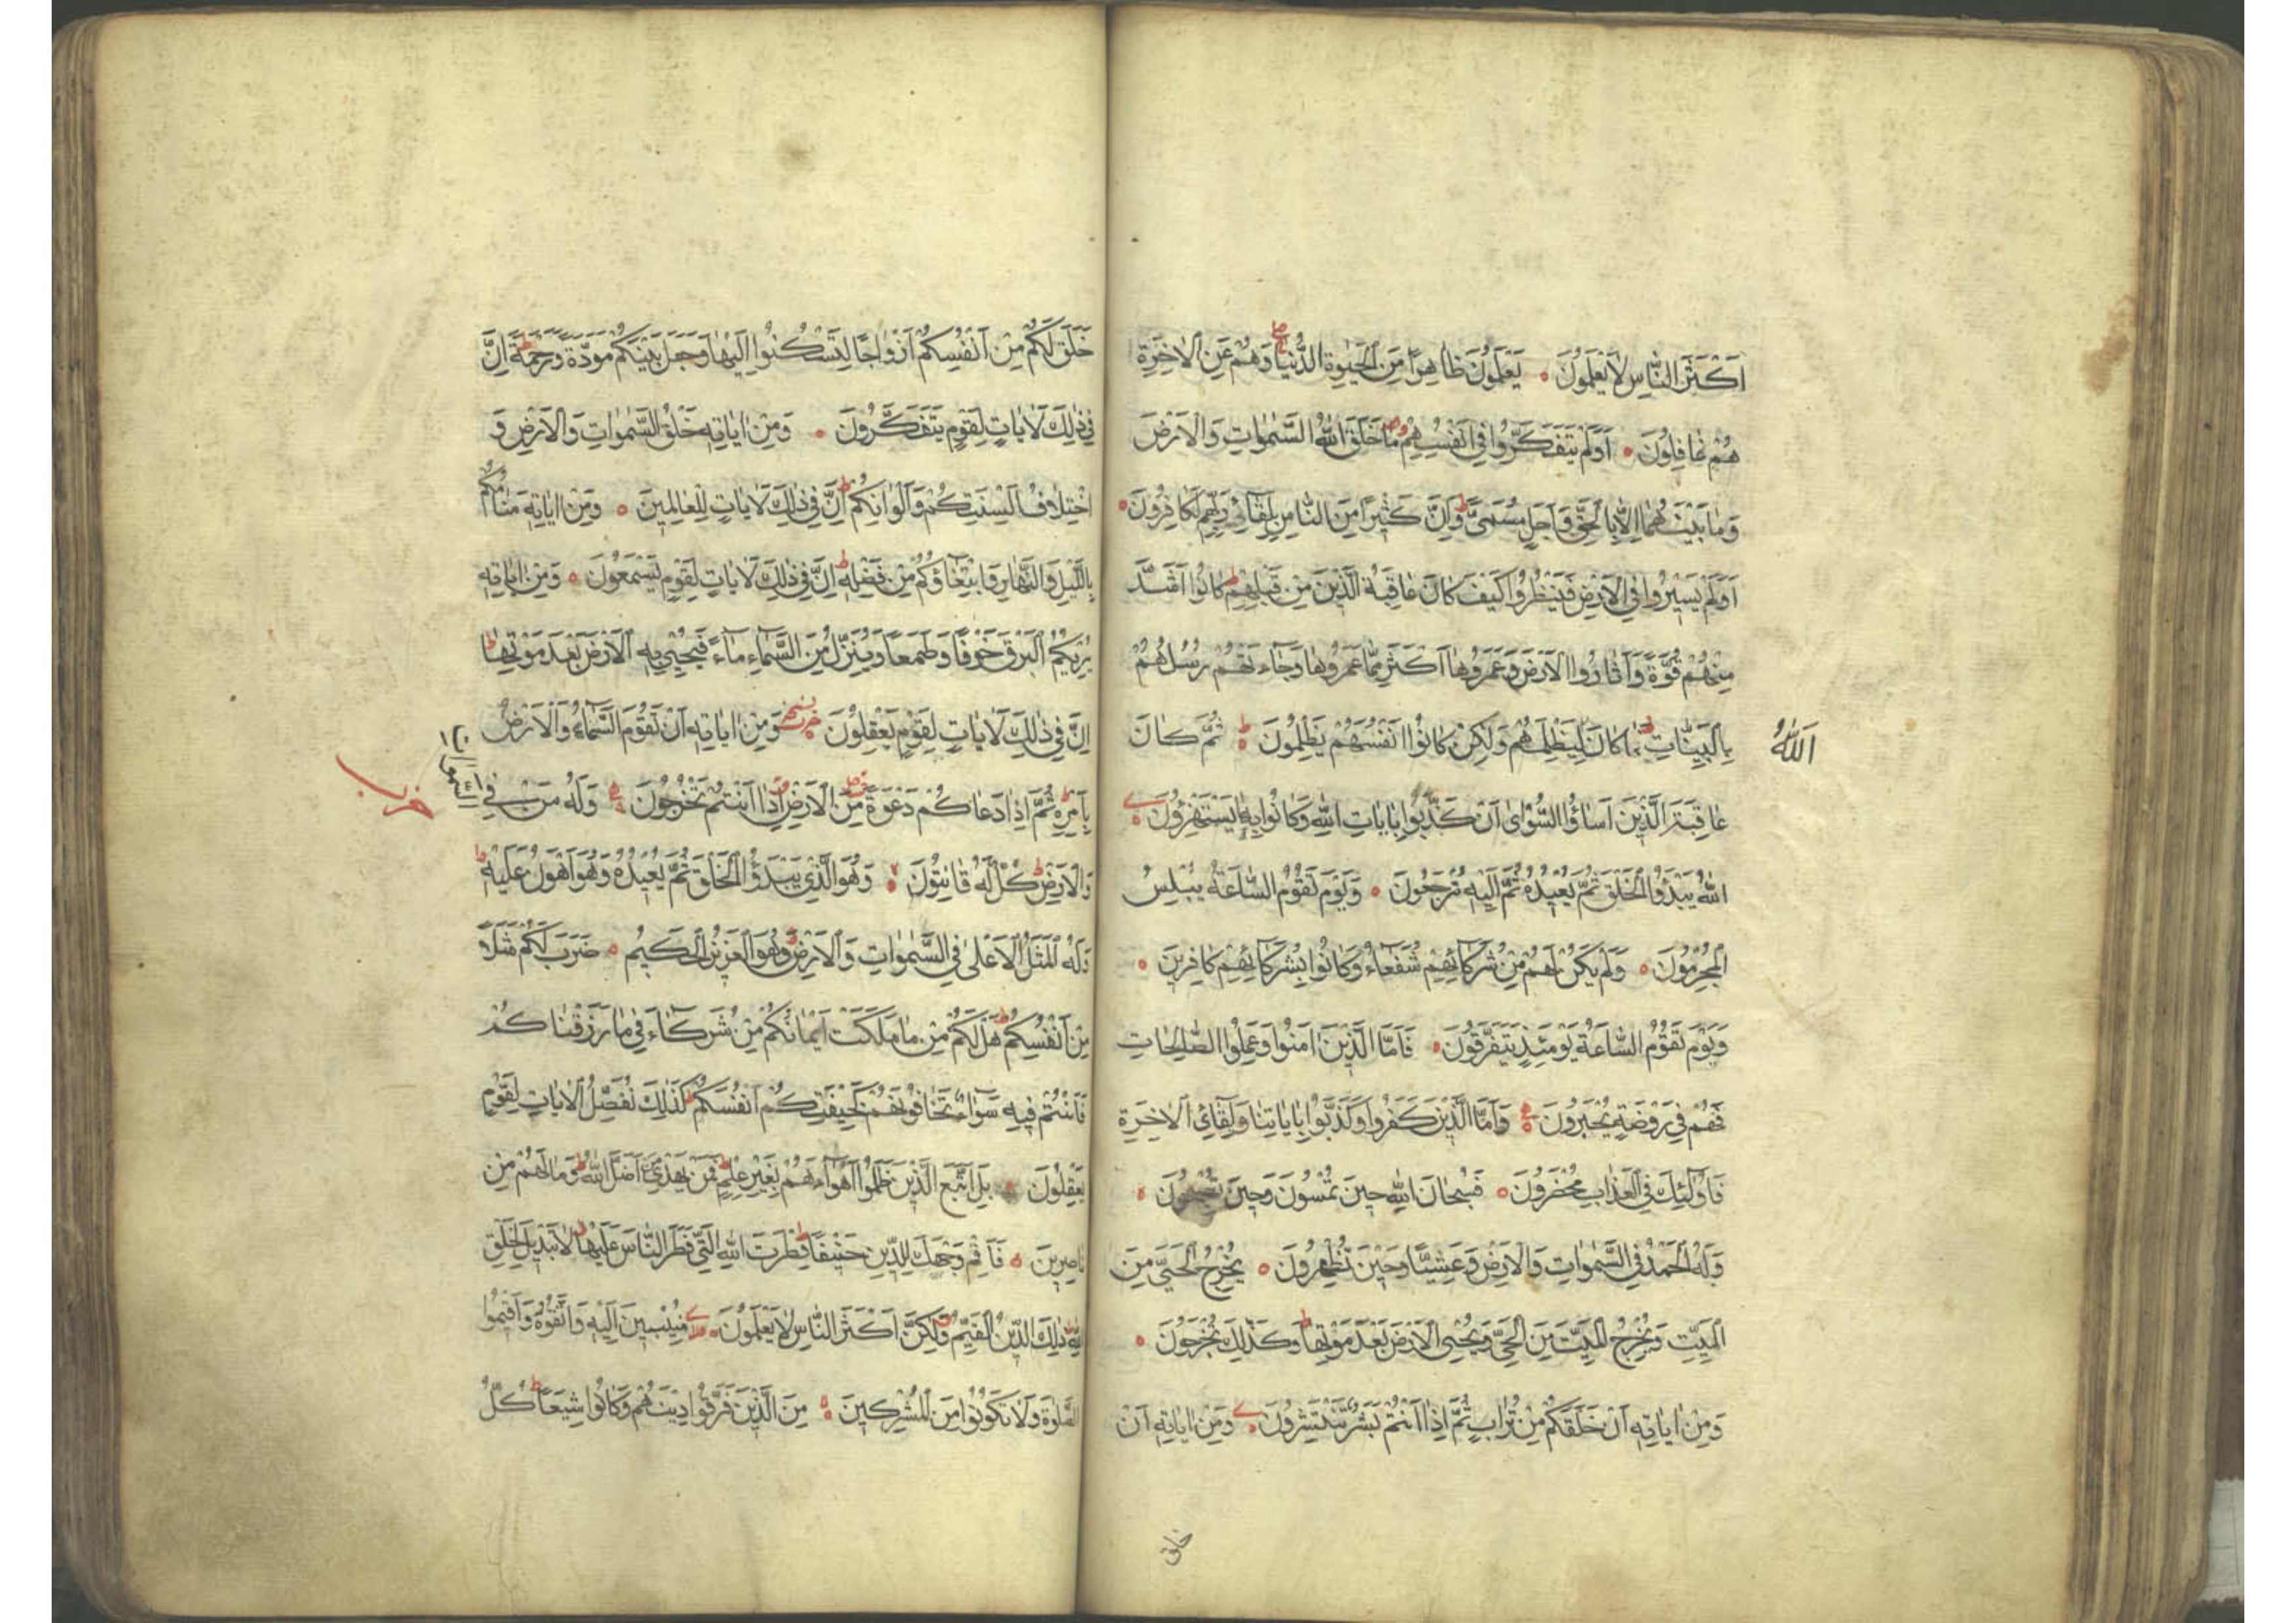 اَكْثَرَ النَّاسِ لَا يَعْلَمُونَ ۰ يَعْلَمُونَ ظَاهِرًا مِنَ الْحَيٰوةِ الدُّنْيَا وَهُمْ عَنِ الْاٰخِرَةِ
هُمْ غَافِلُونَ ۰ اَوَلَمْ يَتَفَكَّرُوا فِي اَنْفُسِهِمْ مَا خَلَقَ اللّٰهُ السَّمٰوَاتِ وَالْاَرْضَ
وَمَا بَيْنَهُمَا اِلَّا بِالْحَقِّ وَاَجَلٍ مُسَمًّى ط وَاِنَّ كَثِيرًا مِنَ النَّاسِ بِلِقَائِ رَبِّهِمْ لَكَافِرُونَ ۰
اَوَلَمْ يَسِيرُوا فِي الْاَرْضِ فَيَنْظُرُوا كَيْفَ كَانَ عَاقِبَةُ الَّذِينَ مِنْ قَبْلِهِمْ ط كَانُوا اَشَدَّ
مِنْهُمْ قُوَّةً وَاَثَارُوا الْاَرْضَ وَعَمَرُوهَا اَكْثَرَ مِمَّا عَمَرُوهَا وَجَاءَتْهُمْ رُسُلُهُمْ
بِالْبَيِّنَاتِ ط فَمَا كَانَ لِيَظْلِمَهُمْ وَلٰكِنْ كَانُوا اَنْفُسَهُمْ يَظْلِمُونَ ط ثُمَّ كَانَ
اَللّٰهُ
عَاقِبَةَ الَّذِينَ اَسَاؤُا السُّوْاٰى اَنْ كَذَّبُوا بِاٰيَاتِ اللّٰهِ وَكَانُوا بِهَا يَسْتَهْزِؤُنَ
اَللّٰهُ يَبْدَؤُا الْخَلْقَ ثُمَّ يُعِيدُهُ ثُمَّ اِلَيْهِ تُرْجَعُونَ ۰ وَيَوْمَ تَقُومُ السَّاعَةُ يُبْلِسُ
الْمُجْرِمُونَ ۰ وَلَمْ يَكُنْ لَهُمْ مِنْ شُرَكَائِهِمْ شُفَعَاءُ وَكَانُوا بِشُرَكَائِهِمْ كَافِرِينَ ۰
وَيَوْمَ تَقُومُ السَّاعَةُ يَوْمَئِذٍ يَتَفَرَّقُونَ ۰ فَاَمَّا الَّذِينَ اٰمَنُوا وَعَمِلُوا الصَّالِحَاتِ
فَهُمْ فِي رَوْضَةٍ يُحْبَرُونَ ۰ وَاَمَّا الَّذِينَ كَفَرُوا وَكَذَّبُوا بِاٰيَاتِنَا وَلِقَائِ الْاٰخِرَةِ
فَاُولٰئِكَ فِي الْعَذَابِ مُحْضَرُونَ ۰ فَسُبْحَانَ اللّٰهِ حِينَ تُمْسُونَ وَحِينَ تُصْبِحُونَ ۰
وَلَهُ الْحَمْدُ فِي السَّمٰوَاتِ وَالْاَرْضِ وَعَشِيًّا وَحِينَ تُظْهِرُونَ ۰ يُخْرِجُ الْحَيَّ مِنَ
الْمَيِّتِ وَيُخْرِجُ الْمَيِّتَ مِنَ الْحَيِّ وَيُحْيِي الْاَرْضَ بَعْدَ مَوْتِهَا ط وَكَذٰلِكَ تُخْرَجُونَ ۰
وَمِنْ اٰيَاتِهِ اَنْ خَلَقَكُمْ مِنْ تُرَابٍ ثُمَّ اِذَا اَنْتُمْ بَشَرٌ تَنْتَشِرُونَ ۰ وَمِنْ اٰيَاتِهِ اَنْ
خلق
خَلَقَ لَكُمْ مِنْ اَنْفُسِكُمْ اَزْوَاجًا لِتَسْكُنُوا اِلَيْهَا وَجَعَلَ بَيْنَكُمْ مَوَدَّةً وَرَحْمَةً ط اِنَّ
فِي ذٰلِكَ لَاٰيَاتٍ لِقَوْمٍ يَتَفَكَّرُونَ ۰ وَمِنْ اٰيَاتِهِ خَلْقُ السَّمٰوَاتِ وَالْاَرْضِ وَ
اخْتِلَافُ اَلْسِنَتِكُمْ وَاَلْوَانِكُمْ ط اِنَّ فِي ذٰلِكَ لَاٰيَاتٍ لِلْعَالِمِينَ ۰ وَمِنْ اٰيَاتِهِ مَنَامُكُمْ
بِاللَّيْلِ وَالنَّهَارِ وَابْتِغَاؤُكُمْ مِنْ فَضْلِهِ ط اِنَّ فِي ذٰلِكَ لَاٰيَاتٍ لِقَوْمٍ يَسْمَعُونَ ۰ وَمِنْ اٰيَاتِهِ
يُرِيكُمُ الْبَرْقَ خَوْفًا وَطَمَعًا وَيُنَزِّلُ مِنَ السَّمَاءِ مَاءً فَيُحْيِي بِهِ الْاَرْضَ بَعْدَ مَوْتِهَا ط
اِنَّ فِي ذٰلِكَ لَاٰيَاتٍ لِقَوْمٍ يَعْقِلُونَ ۰ وَمِنْ اٰيَاتِهِ اَنْ تَقُومَ السَّمَاءُ وَالْاَرْضُ
بِاَمْرِهِ ط ثُمَّ اِذَا دَعَاكُمْ دَعْوَةً مِنَ الْاَرْضِ اِذَا اَنْتُمْ تَخْرُجُونَ ۰ وَلَهُ مَنْ فِي
السموات
حزب
وَالْاَرْضِ ط كُلٌّ لَهُ قَانِتُونَ ۰ وَهُوَ الَّذِي يَبْدَؤُا الْخَلْقَ ثُمَّ يُعِيدُهُ وَهُوَ اَهْوَنُ عَلَيْهِ ط
وَلَهُ الْمَثَلُ الْاَعْلٰى فِي السَّمٰوَاتِ وَالْاَرْضِ وَهُوَ الْعَزِيزُ الْحَكِيمُ ۰ ضَرَبَ لَكُمْ مَثَلًا
مِنْ اَنْفُسِكُمْ ط هَلْ لَكُمْ مِنْ مَا مَلَكَتْ اَيْمَانُكُمْ مِنْ شُرَكَاءَ فِي مَا رَزَقْنَاكُمْ
فَاَنْتُمْ فِيهِ سَوَاءٌ تَخَافُونَهُمْ كَخِيفَتِكُمْ اَنْفُسَكُمْ ط كَذٰلِكَ نُفَصِّلُ الْاٰيَاتِ لِقَوْمٍ
يَعْقِلُونَ ۰ بَلِ اتَّبَعَ الَّذِينَ ظَلَمُوا اَهْوَاءَهُمْ بِغَيْرِ عِلْمٍ ط فَمَنْ يَهْدِي مَنْ اَضَلَّ اللّٰهُ ط وَمَا لَهُمْ مِنْ
نَاصِرِينَ ۰ فَاَقِمْ وَجْهَكَ لِلدِّينِ حَنِيفًا ط فِطْرَتَ اللّٰهِ الَّتِي فَطَرَ النَّاسَ عَلَيْهَا لَا تَبْدِيلَ لِخَلْقِ
اللّٰهِ ذٰلِكَ الدِّينُ الْقَيِّمُ وَلٰكِنَّ اَكْثَرَ النَّاسِ لَا يَعْلَمُونَ ۰ مُنِيبِينَ اِلَيْهِ وَاتَّقُوهُ وَاَقِيمُوا
الصَّلٰوةَ وَلَا تَكُونُوا مِنَ الْمُشْرِكِينَ ۰ مِنَ الَّذِينَ فَرَّقُوا دِينَهُمْ وَكَانُوا شِيَعًا ط كُلُّ